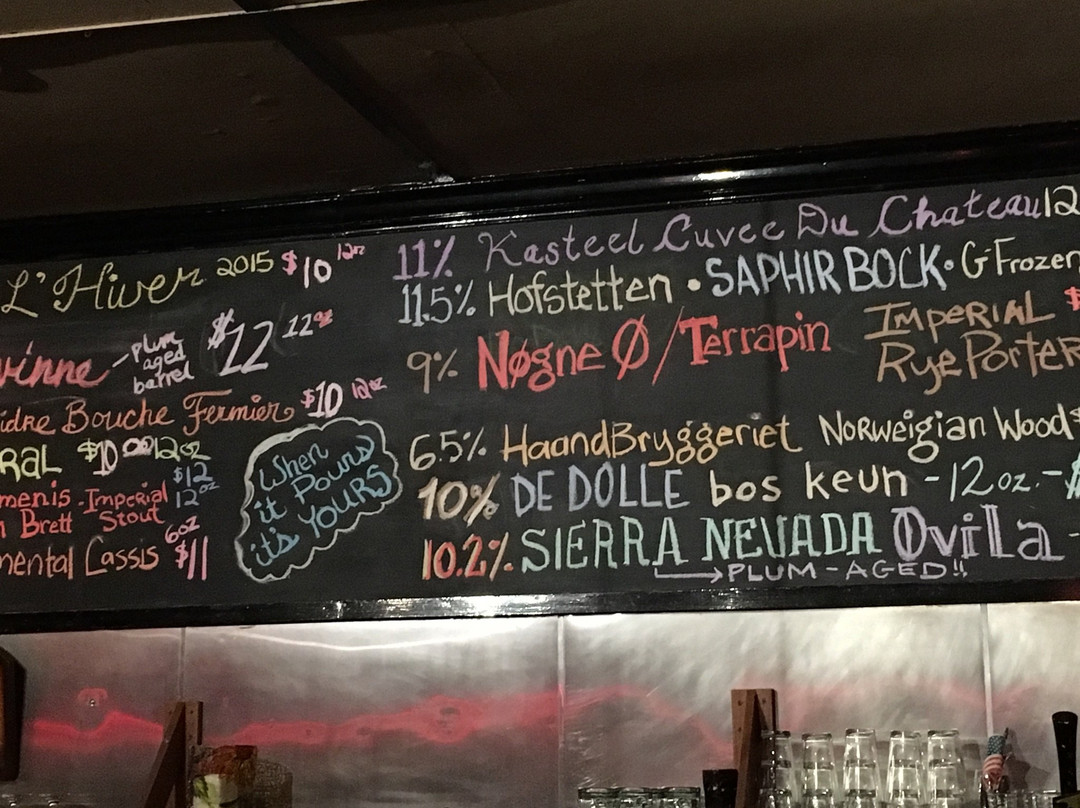 L'Hiver 2015 $10 12oz
vinne - plum
aged
barrel $12 12oz
idre Bouche Fermier $10 12oz
RAL $10 12oz
menis - Imperial $12
n Brett Stout 12oz
mental Cassis 6oz $11
When
it Pours
it's YOURS
11% Kasteel Cuvee Du Chateau 12
11.5% Hofstetten • SAPHIR BOCK • G'Frozen
9% Nøgne Ø/Terrapin IMPERIAL $
Rye PORTER
6.5% HaandBryggeriet NORWEigian Wood $
10% DE DOLLE bos keun - 12oz. - $
10.2% SIERRA NEVADA Ovila -
PLUM-AGED!!